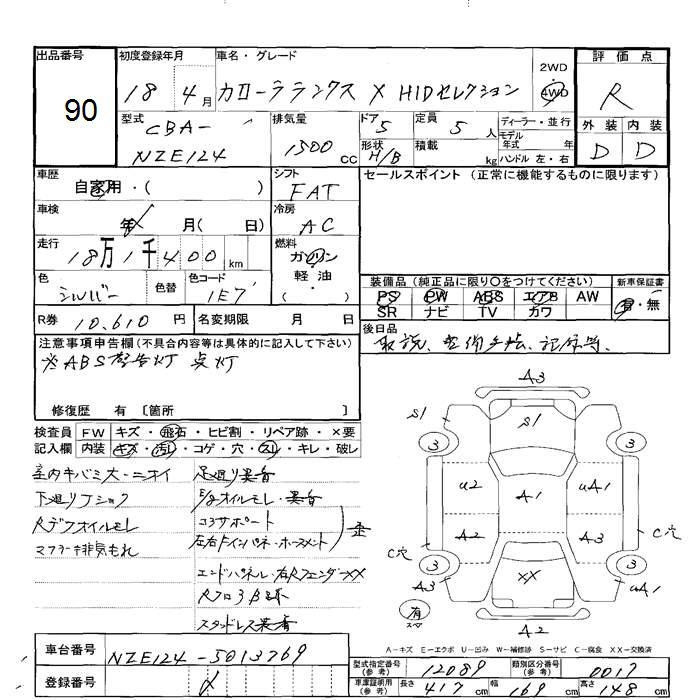 出品番号 初度登録年月 車名・グレード 2WD 4WD 評価点
90 18 4月 カローラランクス X HIDセレクション R
型式 排気量 ドア 定員 ディーラー・並行 外装 内装
CBA- 5 5人 モデル年式 年
NZE124 1500cc 形状 H/B 積載 kg ハンドル 左・右 D D
車歴 シフト セールスポイント (正常に機能するものに限ります)
自家用・( ) FAT
車検 冷房
年 月( 日) AC
走行 燃料
18万1千400km ガソリン
軽・油
・( )
色 色替 色コード 装備品(純正品に限り○をつけてください) 新車保証書
シルバー 1E7 PS PW ABS エアB AW 有・無
SR ナビ TV カワ
R券 10,610円 名変期限 月 日 後日品
取説、整備手帳、記録等、
注意事項申告欄(不具合内容等は具体的に記入して下さい)
※ABS警告灯 点灯
修復歴 有 [箇所 ]
検査員 FW キズ・飛石・ヒビ割・リペア跡・×要
記入欄 内装 キズ・汚レ・コゲ・穴・スレ・キレ・破レ
室内キバミ大・ニオイ 足廻り異音
下廻りフショク E/gオイルモレ・異音
Rデフオイルモレ コアサポート
マフラー排気もれ 左右Fインパネ・ホースメント 歪
エンドパネル・右RフェンダーXX
Rフロア
スタッドレス装着
A3
S1 S1
3 3
U2 A1 UA1
A2 A3
C穴 C穴
3 3
A3 XX UA1
有
スペア
A2
A-キズ E-エクボ U-凹み W-補修跡 S-サビ C-腐食 XX-交換済
車台番号 NZE124-5013769
登録番号
型式指定番号(参考) 12089 類別区分番号(参考) 0017
車庫証明用(参考) 長さ 417cm 幅 169cm 高さ 148cm